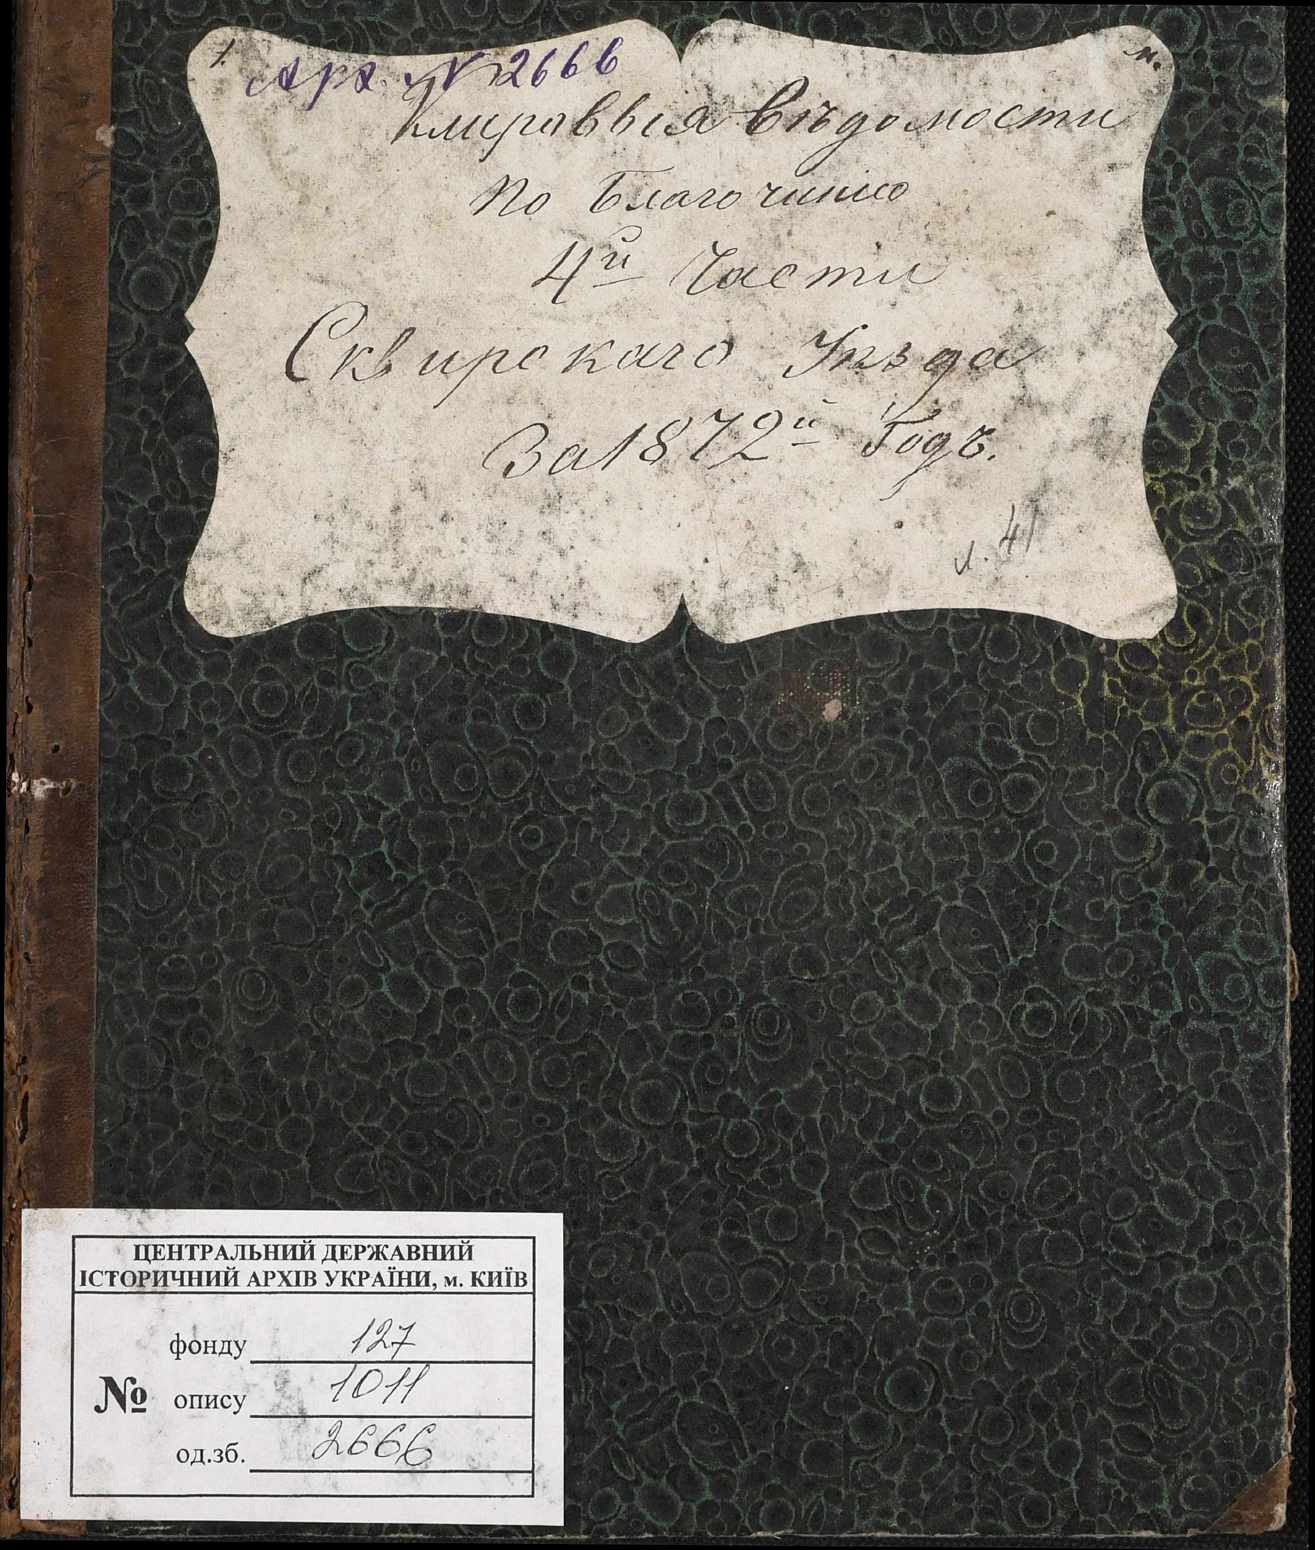 1.
Арх. № 2666
Клировыя Вѣдомости
по Благочинію
4й Части
Сквирскаго Уѣзда
За 1872й Годъ.
л. 41
ЦЕНТРАЛЬНИЙ ДЕРЖАВНИЙ
ІСТОРИЧНИЙ АРХІВ УКРАЇНИ, м. КИЇВ
фонду 127
№ опису 1011
од.зб. 2666